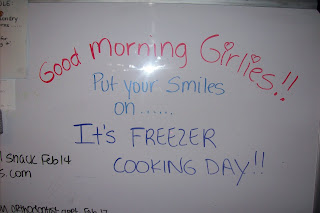 Good Morning Girlies.!!
Put your Smiles
on......
It's FREEZER
COOKING DAY!!
snack Feb 14
s.com
Orthodontist appt Feb 17